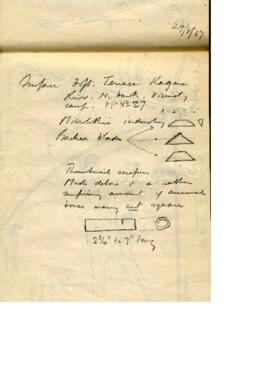 Surface 30ft. Terrace Kagera
River. N. bank. Vicinity,
camp.
Microlithic industry
Backed blades
Thumbnail scrapers
Much debris + a rather
surprising amount of
bones many cut square
2 3/4" to 7" long